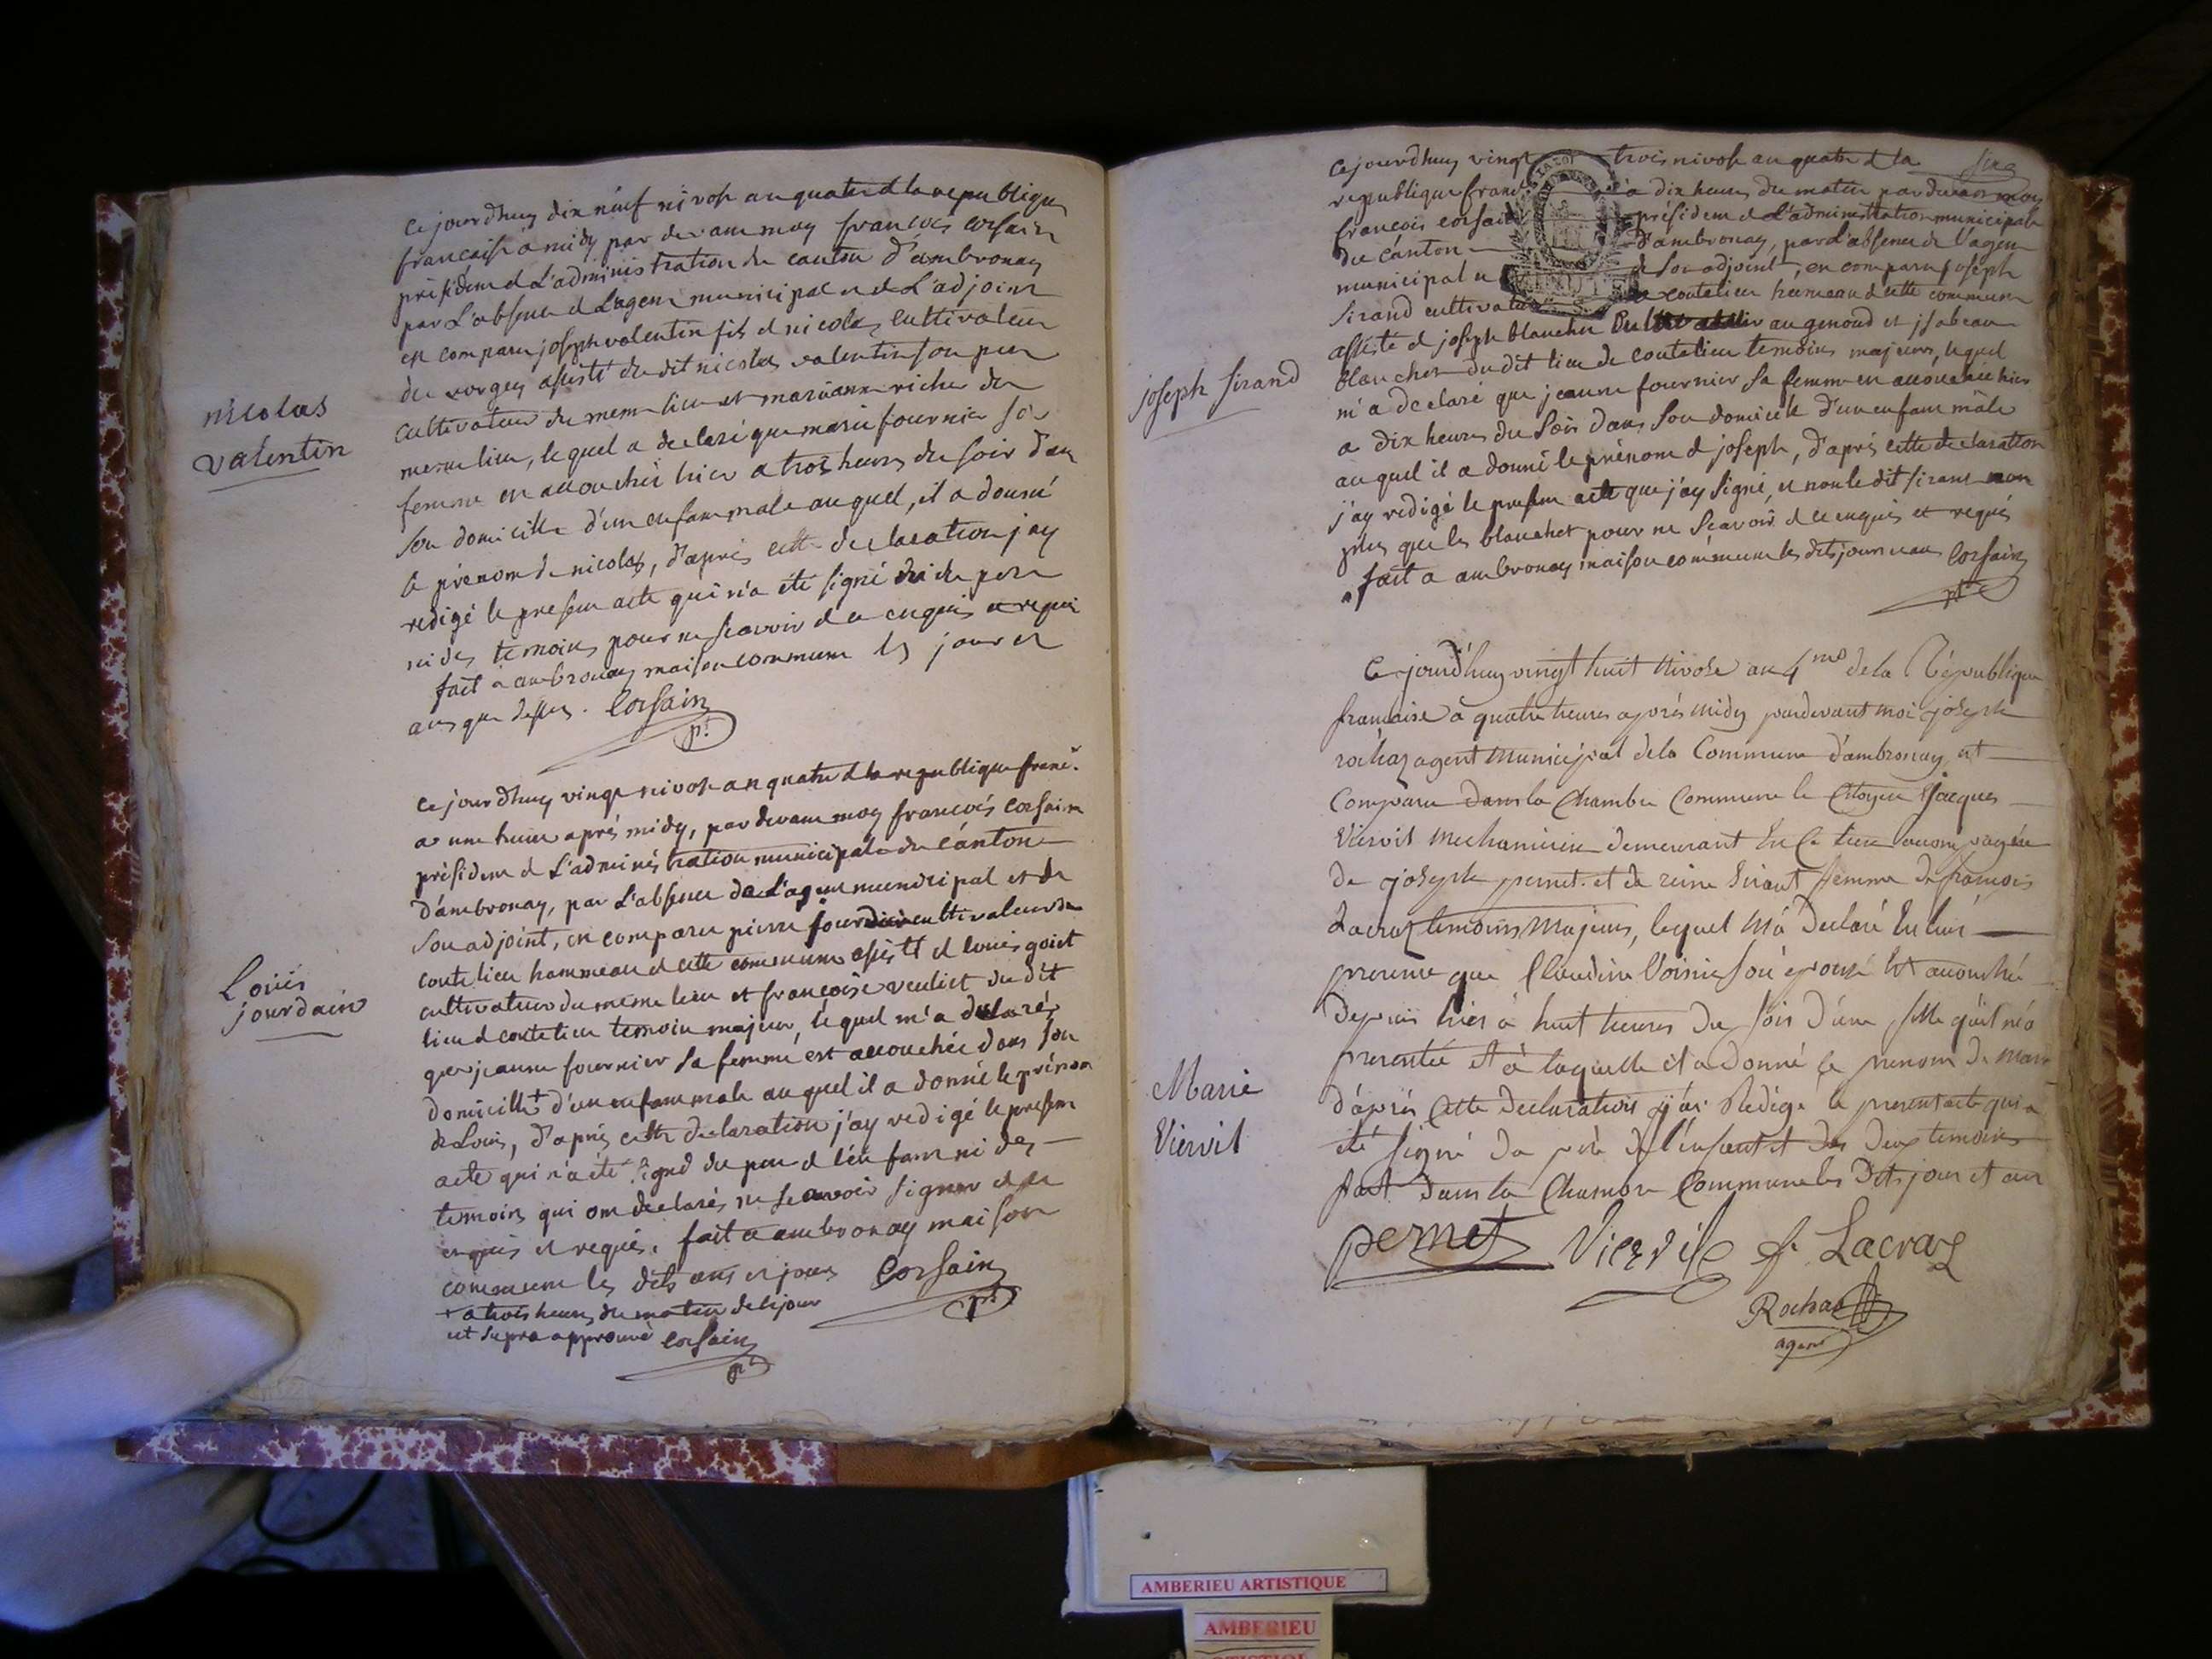 nicolas
valentin
ce jourdhuy dix neuf nivose an quatre d la republique
francaise a midy par devant moy francois corsain
président d L'administration du canton d'ambronay
par L'absence d Lagent municipal et d L'adjoint
est comparu joseph valentin fils d nicolas cultivateur
du vorgey assisté du dit nicolas valentin son pere
cultivateur du meme lieu et marianne richer du
meme lieu, lequel a declaré que marie fournier sa
femme est accouchée hier a trois heures du soir dan
son domicille d'un enfant male auquel, il a donné
le prénom de nicolas, d'après cette declaration j'ay
redigé le present acte qui n'a été signé du pere
ni des temoins pour ne scavoir de ce enquis et requis
fait a ambronay maison commune les jour et
ans que dessus. Corsain
pt.
Loüis
jourdain
ce jourdhuy vingt nivose an quatre d la republique franc.
a une heure après midy, par devant moy francois corsain
président d L'administration municipale du canton
d'ambronay, par L'absence de L'agent municipal et de
son adjoint, est comparu pierre jourdain cultivateur de
coutelieu hammeau d cette commune assisté d louis goiet
cultivateur du meme lieu et francoise veuliet du dit
lieu d coutelieu temoin majeur, lequel m'a declaré
que jeanne fournier sa femme est accouchée dans son
domicille + d'un enfant male auquel il a donné le prénom
de Louis, d'après cette declaration j'ay redigé le present
acte qui n'a été signé du pere d l'enfant ni des
temoins qui ont declarés ne scavoir signer de ce
enquis et requis. fait a ambronay maison
commune les dits ans et jours Corsain
pt.
+ a trois heures du matin de ce jour
ut supra approuvé corsain
pt
joseph sirand
ce jourdhuy vingt trois nivose an quatre d la
republique franc a dix heures du matin par devant moy
francois corsain président d L'administration municipale
du canton d'ambronay, par L'absence de l'agent
municipal et d son adjoint, est comparu joseph
sirand cultivateur a coutelieu hameau d cette commune
assisté d joseph blanchet au genoud et jsabeau
blanchet du dit lieu de coutelieu temoins majeurs, lequel
m'a declaré que jeanne fournier sa femme est accouchée hier
a dix heures du soir dans son domicile d'un enfant mâle
auquel il a donné le prénom d joseph, d'après cette declaration
j'ay redigé le present acte que j'ay signé, et non le dit sirand non
plus que les blanchet pour ne scavoir de ce enquis et requis
fait a ambronay maison commune les dits jour et an Corsain
pt
Marie
Viervil
Ce jourd'huy vingt huit Nivose an 4me de la République
francaise à quatre heures après midy pardevant moi joseph
rochaz agent municipal de la Commune d'ambronay est
Comparu dans la Chambre Commune le Citoyen Jacques
Viervil mechanicien demeurant En Ce lieu accompagné
de joseph pernet et de reine Sirant femme de francois
Lacraz temoins Majeurs, lequel M'a Declaré
que Claudine Voisin son épouse Est accouchée
Depuis hier à huit heures Du soir D'une fille qu'il m'a
presentée Et à laquelle il a donné le prenom de Marie
D'après Cette Declaration j'ai Redigé le present acte qui a
été signé Du père de l'enfant et des deux temoins
fait Dans la Chambre Commune les Dits jour et an
pernet Viervil f. Lacraz
Rochaz
agent
AMBERIEU ARTISTIQUE
AMBERIEU
ARTISTIQUE